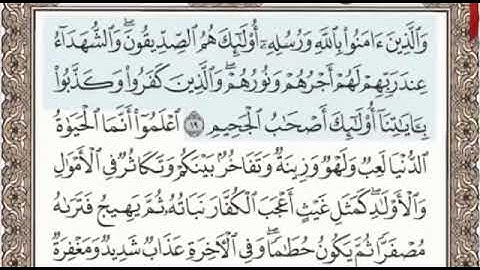 وَٱلَّذِينَ ءَامَنُوا۟ بِٱللَّهِ وَرُسُلِهِۦٓ أُو۟لَـٰٓئِكَ هُمُ ٱلصِّدِّيقُونَ ۖ وَٱلشُّهَدَآءُ
عِندَ رَبِّهِمْ لَهُمْ أَجْرُهُمْ وَنُورُهُمْ ۖ وَٱلَّذِينَ كَفَرُوا۟ وَكَذَّبُوا۟
بِـَٔايَـٰتِنَآ أُو۟لَـٰٓئِكَ أَصْحَـٰبُ ٱلْجَحِيمِ ١٩ ٱعْلَمُوٓا۟ أَنَّمَا ٱلْحَيَوٰةُ
ٱلدُّنْيَا لَعِبٌ وَلَهْوٌ وَزِينَةٌ وَتَفَاخُرٌۢ بَيْنَكُمْ وَتَكَاثُرٌ فِى ٱلْأَمْوَٰلِ
وَٱلْأَوْلَـٰدِ ۖ كَمَثَلِ غَيْثٍ أَعْجَبَ ٱلْكُفَّارَ نَبَاتُهُۥ ثُمَّ يَهِيجُ فَتَرَىٰهُ
مُصْفَرًّا ثُمَّ يَكُونُ حُطَـٰمًا ۖ وَفِى ٱلْـَٔاخِرَةِ عَذَابٌ شَدِيدٌ وَمَغْفِرَةٌ